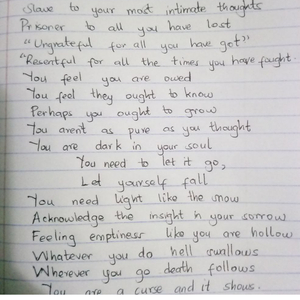 Slave to your most intimate thoughts
Prisoner to all you have lost
"Ungrateful for all you have got"
"Resentful for all the times you have fought.
You feel you are owed
You feel they ought to know
Perhaps you ought to grow
You arent as pure as you thought
You are dark in your soul
You need to let it go,
Let yourself fall
You need light like the snow
Acknowledge the insight in your sorrow
Feeling emptiness like you are hollow
Whatever you do hell swallows
Wherever you go death follows
You are a curse and it shows.